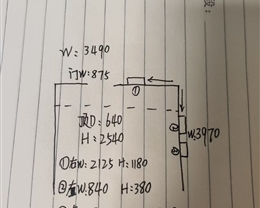 W: 3490
门W: 875
①
顶D: 640
H: 2540
W.3970
①右W: 2125 H: 1180
W.840 H: 380